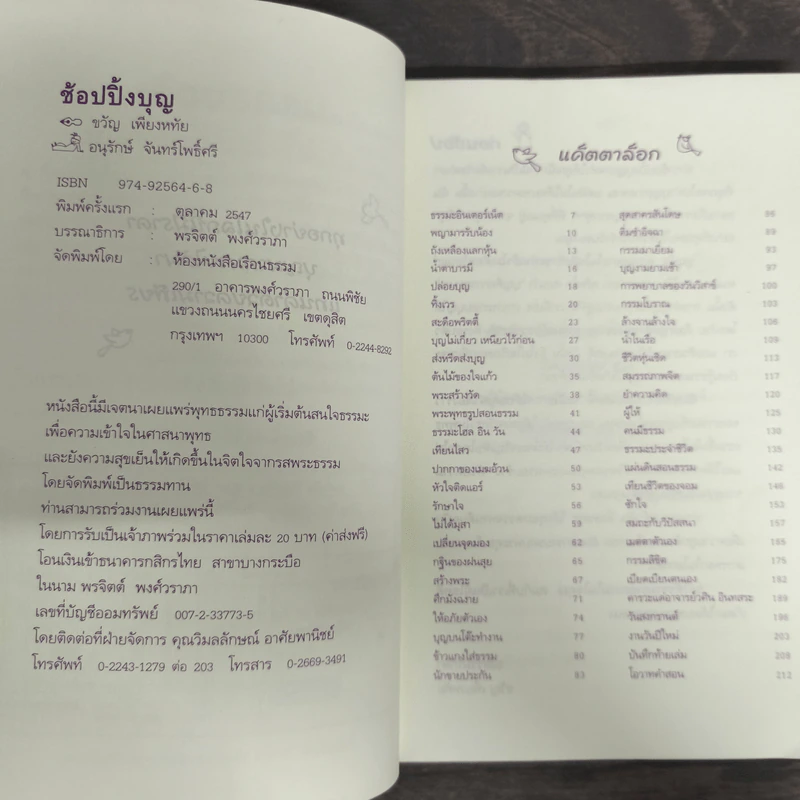 ช้อปปิ้งบุญ
ขวัญ เพียงหทัย
อนุรักษ์ จันทร์โพธิ์ศรี
ISBN 974-92564-6-8
พิมพ์ครั้งแรก : ตุลาคม 2547
บรรณาธิการ : พรจิตต์ พงศ์วราภา
จัดพิมพ์โดย : ห้องหนังสือเรือนธรรม
290/1 อาคารพงศ์วราภา ถนนพิชัย
แขวงถนนนครไชยศรี เขตดุสิต
กรุงเทพฯ 10300 โทรศัพท์ 0-2244-8292
หนังสือนี้มีเจตนาเผยแพร่พุทธธรรมแก่ผู้เริ่มต้นสนใจธรรมะ
เพื่อความเข้าใจในศาสนาพุทธ
และยังความสุขเย็นให้เกิดขึ้นในจิตใจจากรสพระธรรม
โดยจัดพิมพ์เป็นธรรมทาน
ท่านสามารถร่วมงานเผยแพร่นี้
โดยการรับเป็นเจ้าภาพร่วมในราคาเล่มละ 20 บาท (ค่าส่งฟรี)
โอนเงินเข้าธนาคารกสิกรไทย สาขาบางกระบือ
ในนาม พรจิตต์ พงศ์วราภา
เลขที่บัญชีออมทรัพย์ 007-2-33773-5
โดยติดต่อที่ฝ่ายจัดการ คุณวิมลลักษณ์ อาศัยพานิชย์
โทรศัพท์ 0-2243-1279 ต่อ 203 โทรสาร 0-2669-3491
แค็ตตาล็อก
ธรรมะอินเตอร์เน็ต 7
พญามารรับน้อง 10
ถังเหลืองแลกหุ้น 13
น้ำตาบารมี 16
ปล่อยบุญ 18
ทิ้งเวร 20
สะดือพริตตี้ 23
บุญไม่เกี่ยว เหนียวไว้ก่อน 27
ส่งทวีตส่งบุญ 30
ต้นไม้ของใจแก้ว 35
พระสร้างวัด 38
พระพุทธรูปสอนธรรม 41
ธรรมะโฮล อิน วัน 44
เทียนไสว 47
ปากกาของเมฆอ้วน 50
หัวใจติดแอร์ 53
รักษาใจ 56
ไม่ได้มุสา 59
เปลี่ยนจุดมอง 62
กฐินของฝนสุย 65
สร้างพระ 67
ศึกมังฉงาย 71
ให้อภัยตัวเอง 74
บุญบนโต๊ะทำงาน 77
ข้าวแกงใส่ธรรม 80
นักขายประกัน 83
สุดสาครสันโดษ 86
ลืมซ้ำอิจฉา 89
กรรมมาเยี่ยม 93
บุญงามยามเช้า 97
การพยาบาลของวันวิสาข์ 100
กรรมโบราณ 103
ล้างจานล้างใจ 106
น้ำในเรือ 109
ชีวิตหุ่นเชิด 113
สมรรถภาพจิต 117
ย้ำความคิด 120
ผู้ให้ 125
คนมีธรรม 130
ธรรมะประจำชีวิต 135
แผ่นดินสอนธรรม 142
เทียนชีวิตของจอม 146
ซักใจ 150
สมถะกับวิปัสสนา 157
เมตตาตัวเอง 165
กรรมลิขิต 175
เบียดเบียนตนเอง 182
คารวะแด่อาจารย์วศิน อินทสระ 189
วันสงกรานต์ 196
งานวันปีใหม่ 203
บันทึกท้ายเล่ม 208
โอวาทคำสอน 212